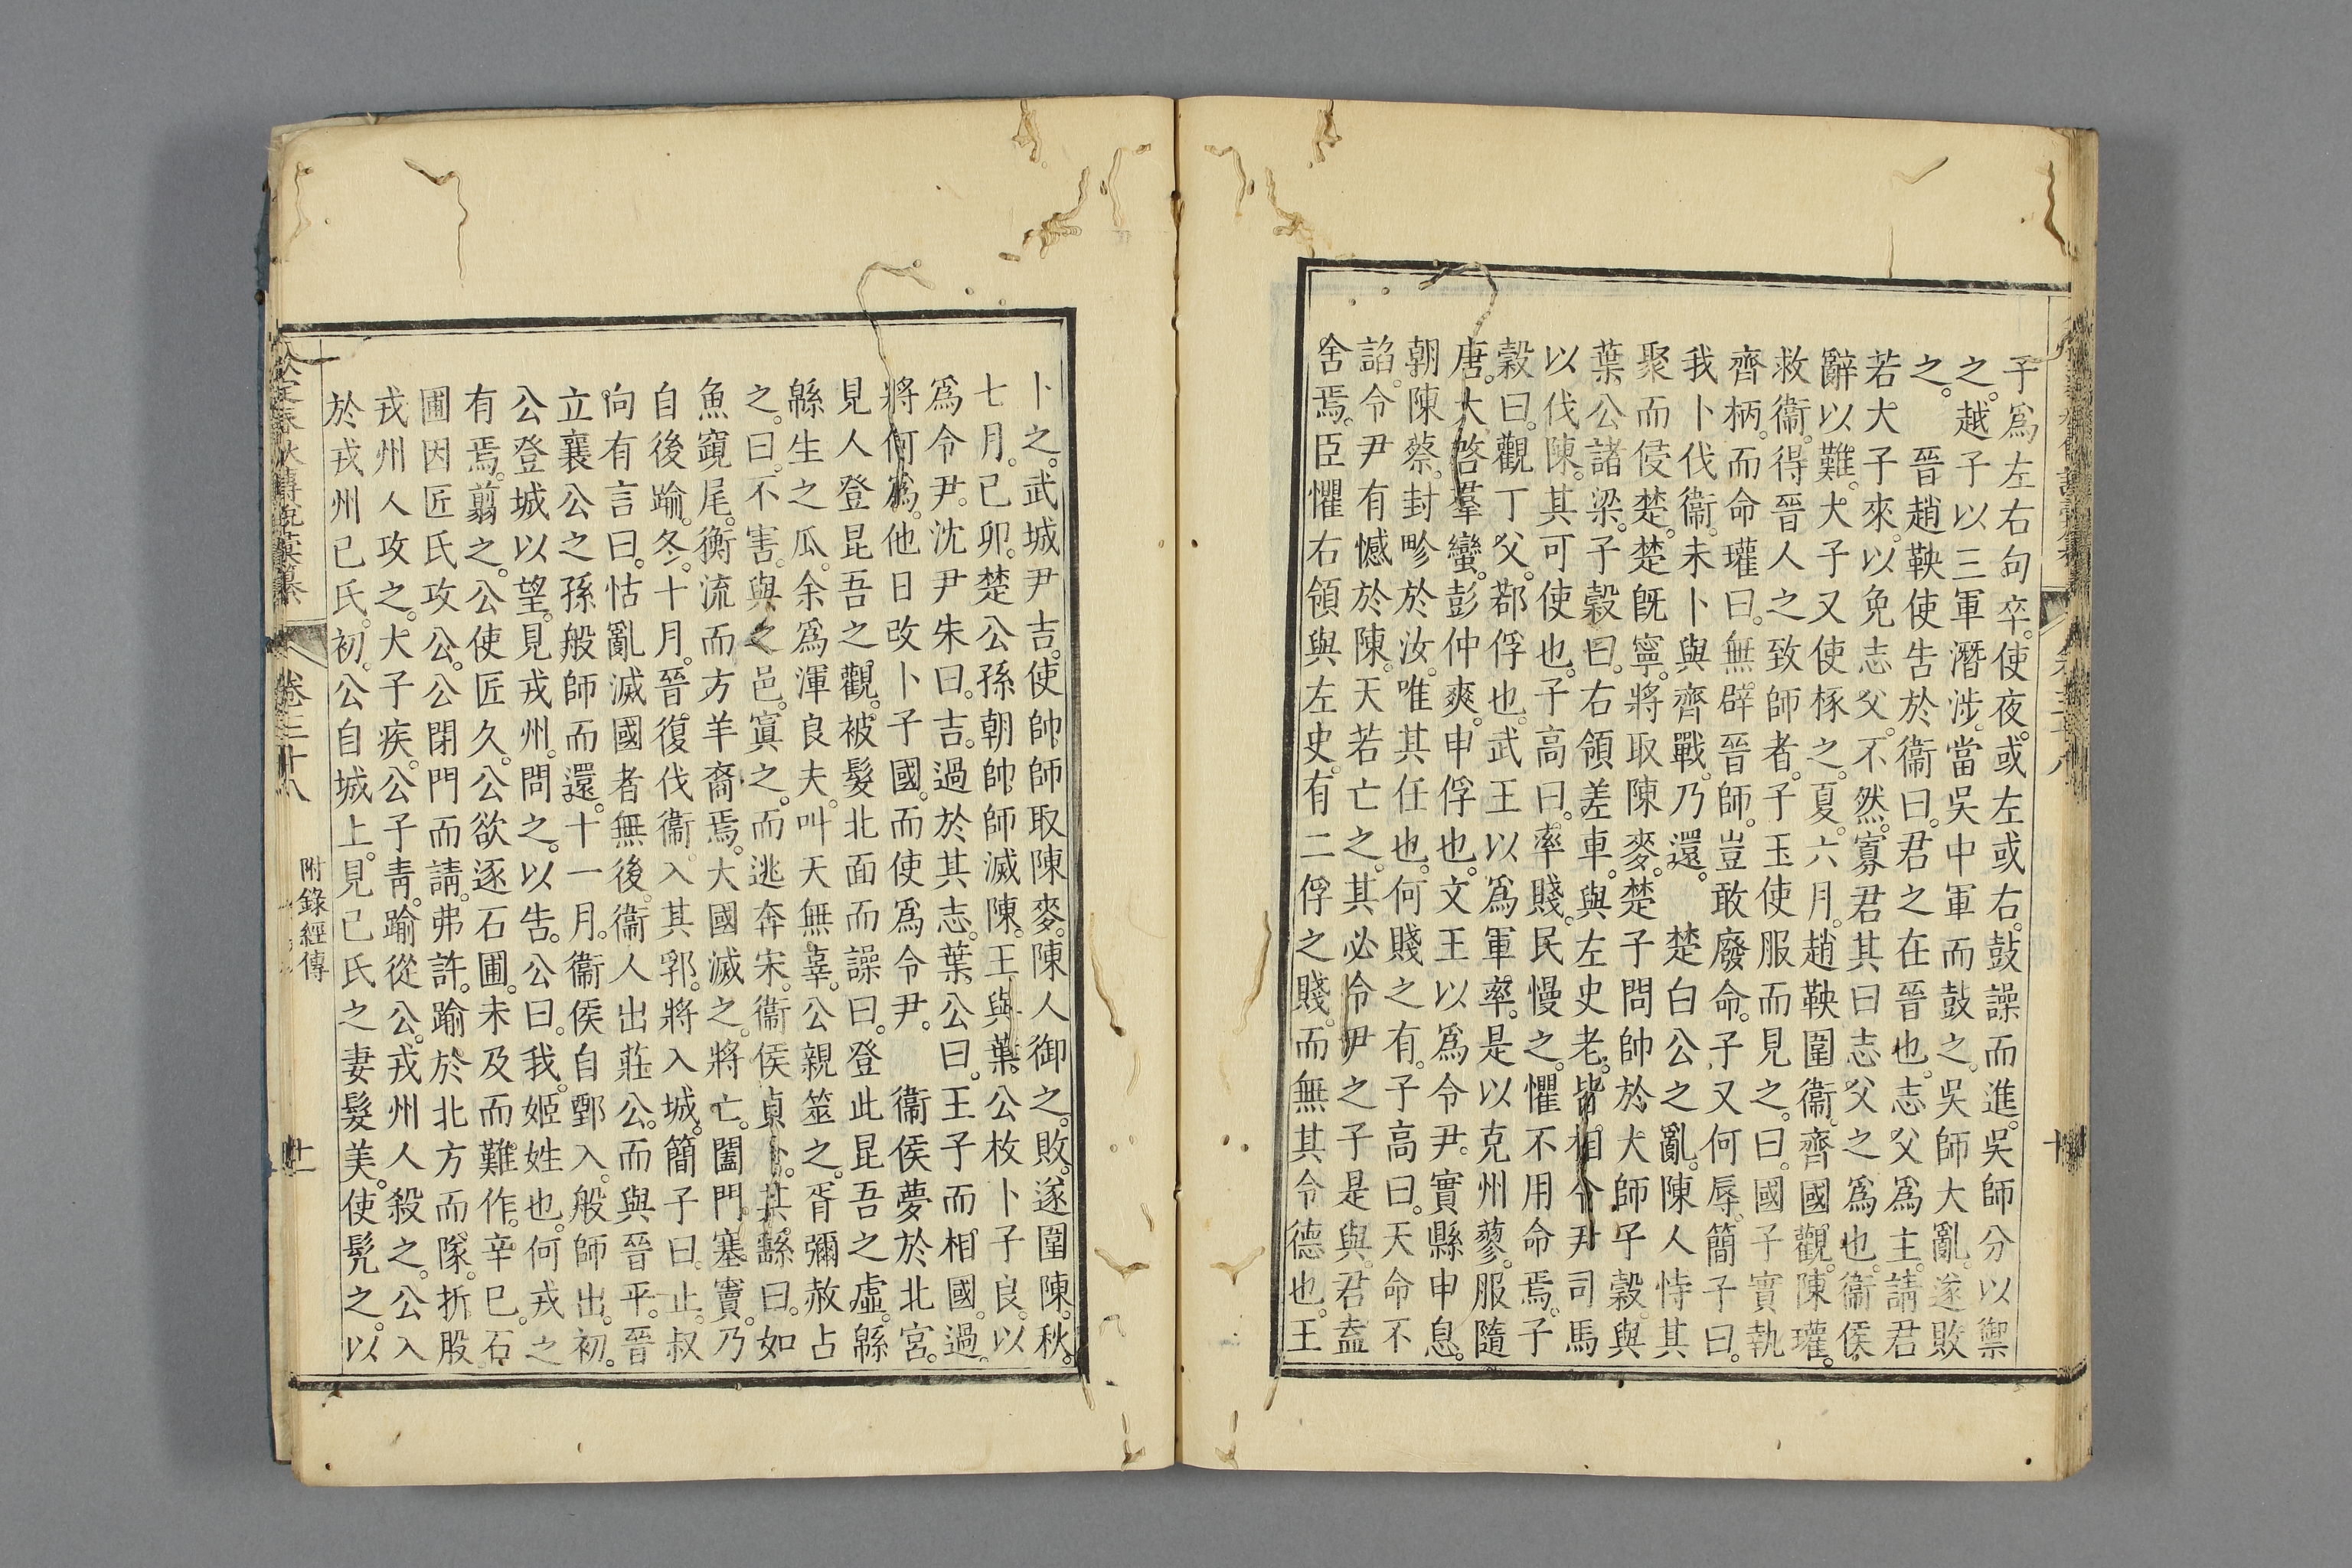 子爲左右句卒。使夜。或左或右。鼓譟而進。吳師分以禦
之。越子以三軍潛涉。當吳中軍而鼓之。吳師大亂。遂敗
之。　晉趙鞅使告於衞曰。君之在晉也。志父爲主。請君
若大子來。以免志父。不然。寡君其曰志父之爲也。衞侯
辭以難。大子又使椓之。夏。六月。趙鞅圍衞。齊國觀。陳瓘。
救衞。得晉人之致師者。子玉使服而見之。曰。國子實執
齊柄。而命瓘曰。無辟晉師。豈敢廢命。子又何辱。簡子曰。
我卜伐衞。未卜與齊戰。乃還。　楚白公之亂。陳人恃其
聚而侵楚。楚旣寧。將取陳麥。楚子問帥於大師子穀。與
葉公諸梁。子穀曰。右領差車。與左史老。皆相令尹司馬
以伐陳。其可使也。子高曰。率賤。民慢之。懼不用命焉。子
穀曰。觀丁父。鄀俘也。武王以爲軍率。是以克州蓼。服隨
唐。大啓羣蠻。彭仲爽。申俘也。文王以爲令尹。實縣申息。
朝陳蔡。封畛於汝。唯其任也。何賤之有。子高曰。天命不
謟。令尹有憾於陳。天若亡之。其必令尹之子是與。君盍
舍焉。臣懼右領與左史。有二俘之賤。而無其令德也。王
卜之。武城尹吉。使帥師取陳麥。陳人御之。敗。遂圍陳。秋。
七月。己卯。楚公孫朝帥師滅陳。王與葉公枚卜子良。以
爲令尹。沈尹朱曰。吉。過於其志。葉公曰。王子而相國。過。
將何爲。他日改卜子國。而使爲令尹。　衞侯夢於北宮。
見人登昆吾之觀。被髮北面而譟曰。登此昆吾之虛。緜
緜生之瓜。余爲渾良夫。叫天無辜。公親筮之。胥彌赦占
之。曰。不害。與之邑。寘之。而逃奔宋。衞侯貞卜。其繇曰。如
魚竀尾。衡流而方羊裔焉。大國滅之。將亡。闔門塞竇。乃
自後踰。冬。十月。晉復伐衞。入其郛。將入城。簡子曰。止。叔
向有言曰。怙亂滅國者無後。衞人出莊公。而與晉平。晉
立襄公之孫般師而還。十一月。衞侯自鄄入。般師出。初。
公登城以望。見戎州。問之。以告。公曰。我。姬姓也。何戎之
有焉。翦之。公使匠久。公欲逐石圃。未及而難作。辛巳。石
圃因匠氏攻公。公閉門而請。弗許。踰於北方而隊。折股
戎州人攻之。大子疾。公子靑。踰從公。戎州人殺之。公入
於戎州己氏。初。公自城上。見己氏之妻髮美。使髡之。以
欽定春秋傳說彙纂　卷三十八　附錄經傳　十一